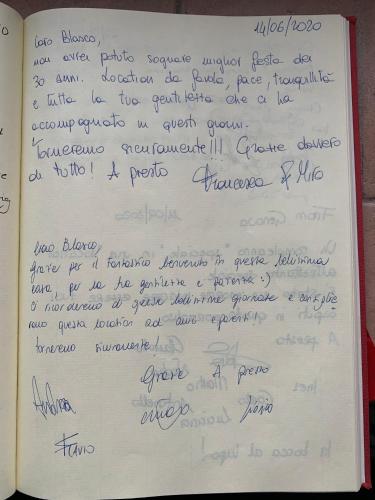 14/06/2020
Caro Blasco,
non avrei potuto sognare miglior festa dei
30 anni. Location da favola, pace, tranquillità
e tutta la tua gentilezza che ci ha
accompagnato in questi giorni.
Torneremo sicuramente!!! Grazie davvero
di tutto! A presto Francesca & Miro
Ciao Blasco,
grazie per il fantastico benvenuto in questa bellissima
casa, per la tua gentilezza e pazienza :)
Ci ricorderemo di queste bellissime giornate e consiglie
remo questa location ad amici e parenti!
Torneremo sicuramente!
Grazie A presto
Andrea
Flavio